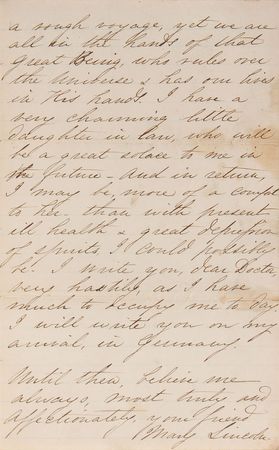 a rough voyage, yet we are
all in the hands of that
Great Being, who rules over
the Universe & has our lives
in His hands. I have a
very charming little
daughter in law, who will
be a great solace to me in
the future - and in return,
I may be, more of a comfort
to her, than with present
ill health & great depression
of spirits, I could possibly
be. I write you, dear Doctor
very hastily, as I have
much to occupy me to day.
I will write you on my
arrival, in Germany.
Until then, believe me
always, most truly and
affectionately, your friend
Mary Lincoln